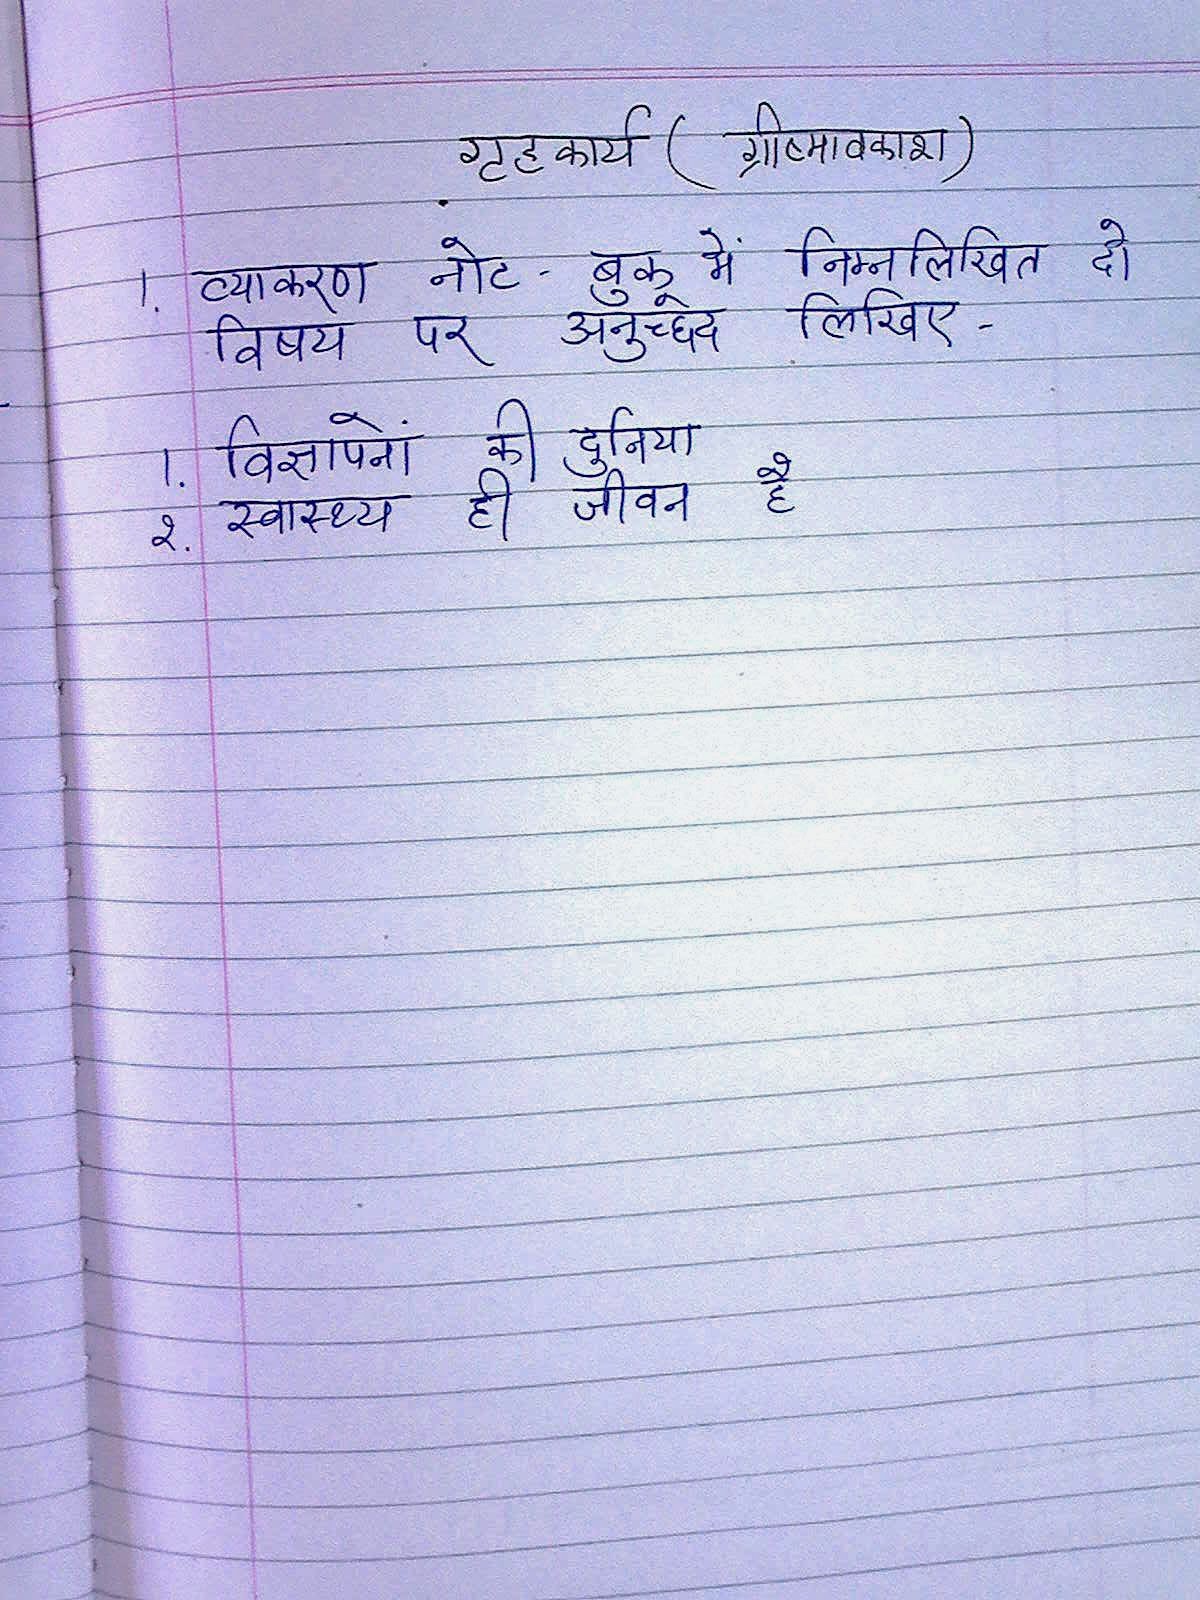 गृहकार्य ( ग्रीष्मावकाश )
1. व्याकरण नोट - बुक में निम्नलिखित दो
विषय पर अनुच्छेद लिखिए -
1. विज्ञापनों की दुनिया
२. स्वास्थ्य ही जीवन है